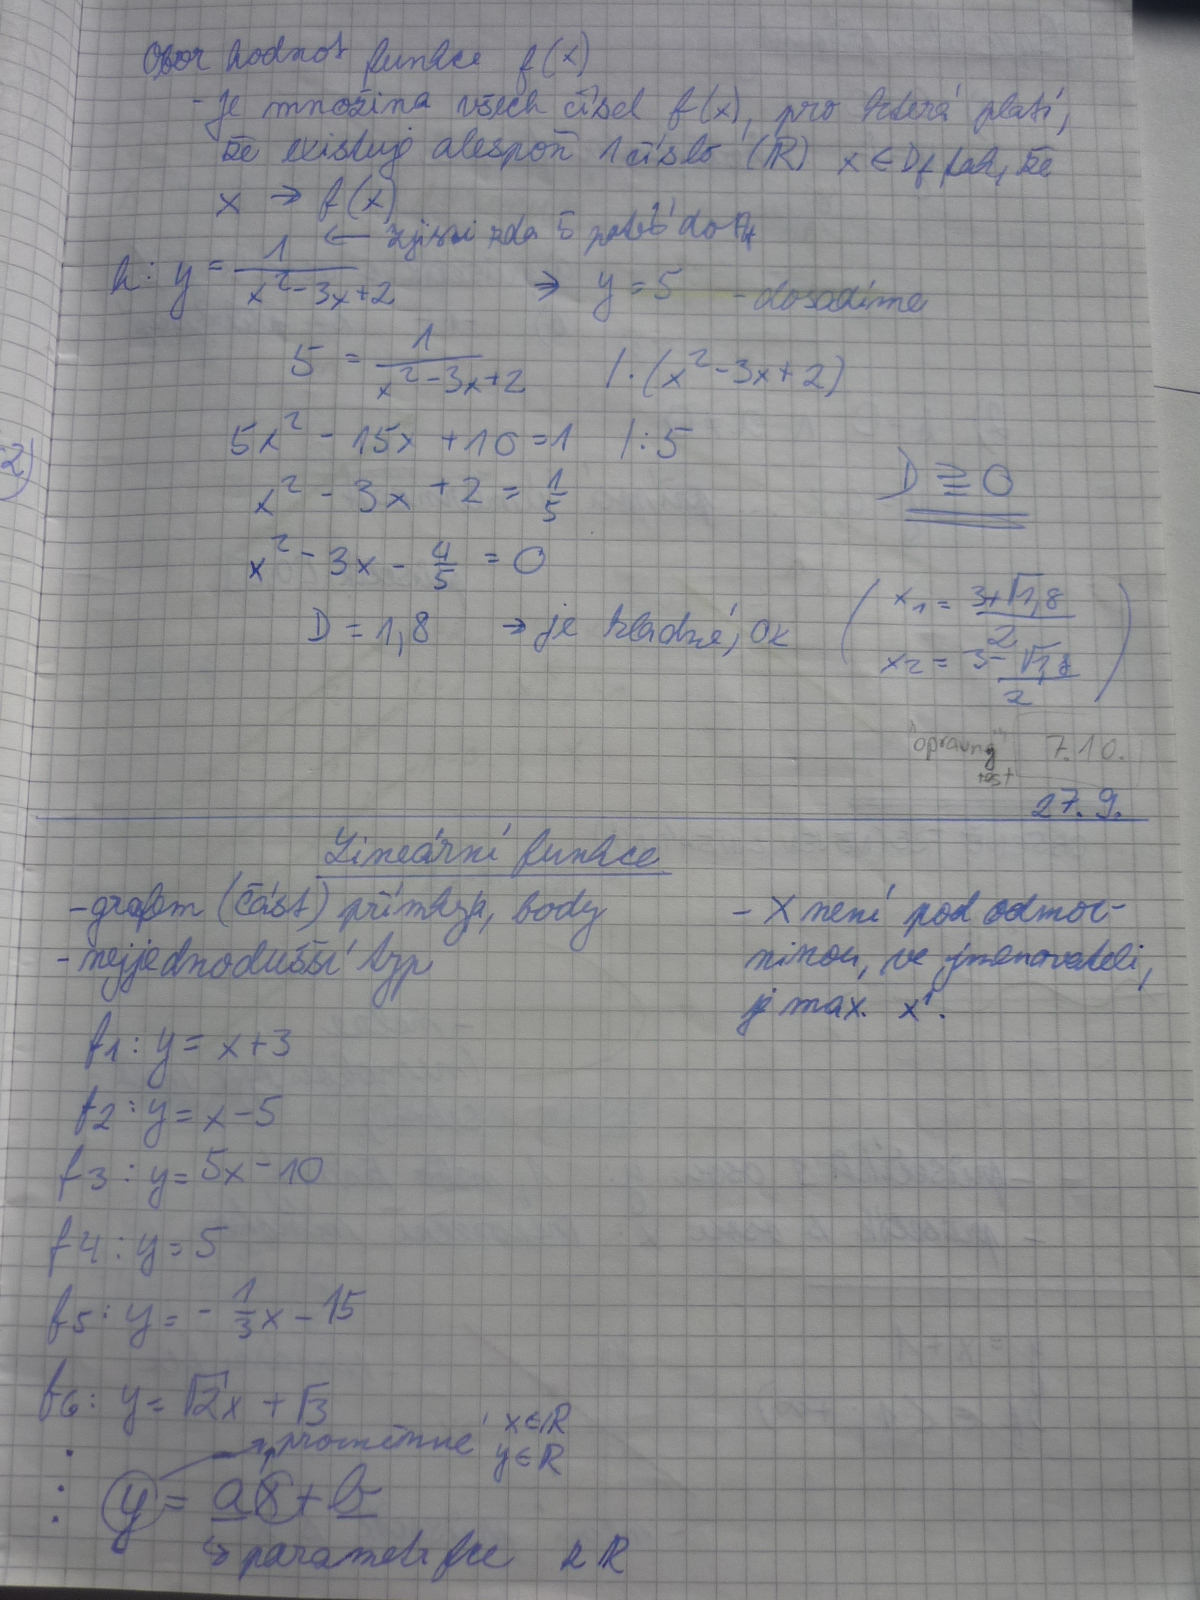 Obor hodnot funkce f(x)
- je množina všech čísel f(x), pro která platí,
že existuje alespoň 1 číslo (R) x ∈ Df tak, že
x → f(x)
← zjisti zda 5 patří do Hf
h: y = 1/(x² - 3x + 2) ⇒ y = 5 - dosadíme
5 = 1/(x² - 3x + 2) /·(x² - 3x + 2)
5x² - 15x + 10 = 1 /:5
2)
x² - 3x + 2 = 1/5
D ≥ 0
x² - 3x - 4/5 = 0
D = 1,8 → je kladné, ok
(x1 = (3+√1,8)/2
x2 = (3-√1,8)/2)
"opravný" 7.10.
test
27. 9.
Lineární funkce
- grafem (část) přímky, body
- nejjednodušší typ
- x není pod odmoc-
ninou, ve jmenovateli,
je max. x¹.
f1: y = x+3
f2: y = x-5
f3: y = 5x-10
f4: y = 5
f5: y = -1/3x - 15
f6: y = √2x + √3
→ proměnné x∈R
y∈R
y = ax + b
↳ parametr fce z R